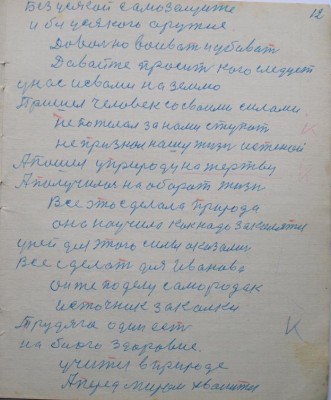 Без цякой самозащите 12
и биз цякого оружие.
Доволно воиват и убиват
Давайте просит кого следует
у нас и свами на земло
Пришил человек со своими силами
не пожелал за нами ступат
не признал нашу жизн истеной
А пошел у природу на жертву
А получилос на оборот жизн
Все это сделала природа
она научила как надо закалятц
у ней для этого силы оказали
Все сделат для Иванова
он те по делу самородак
источник закалки
Трудяга один ест
на благо здоровие.
учитц в природе
А перед миром хвалитц
К
К